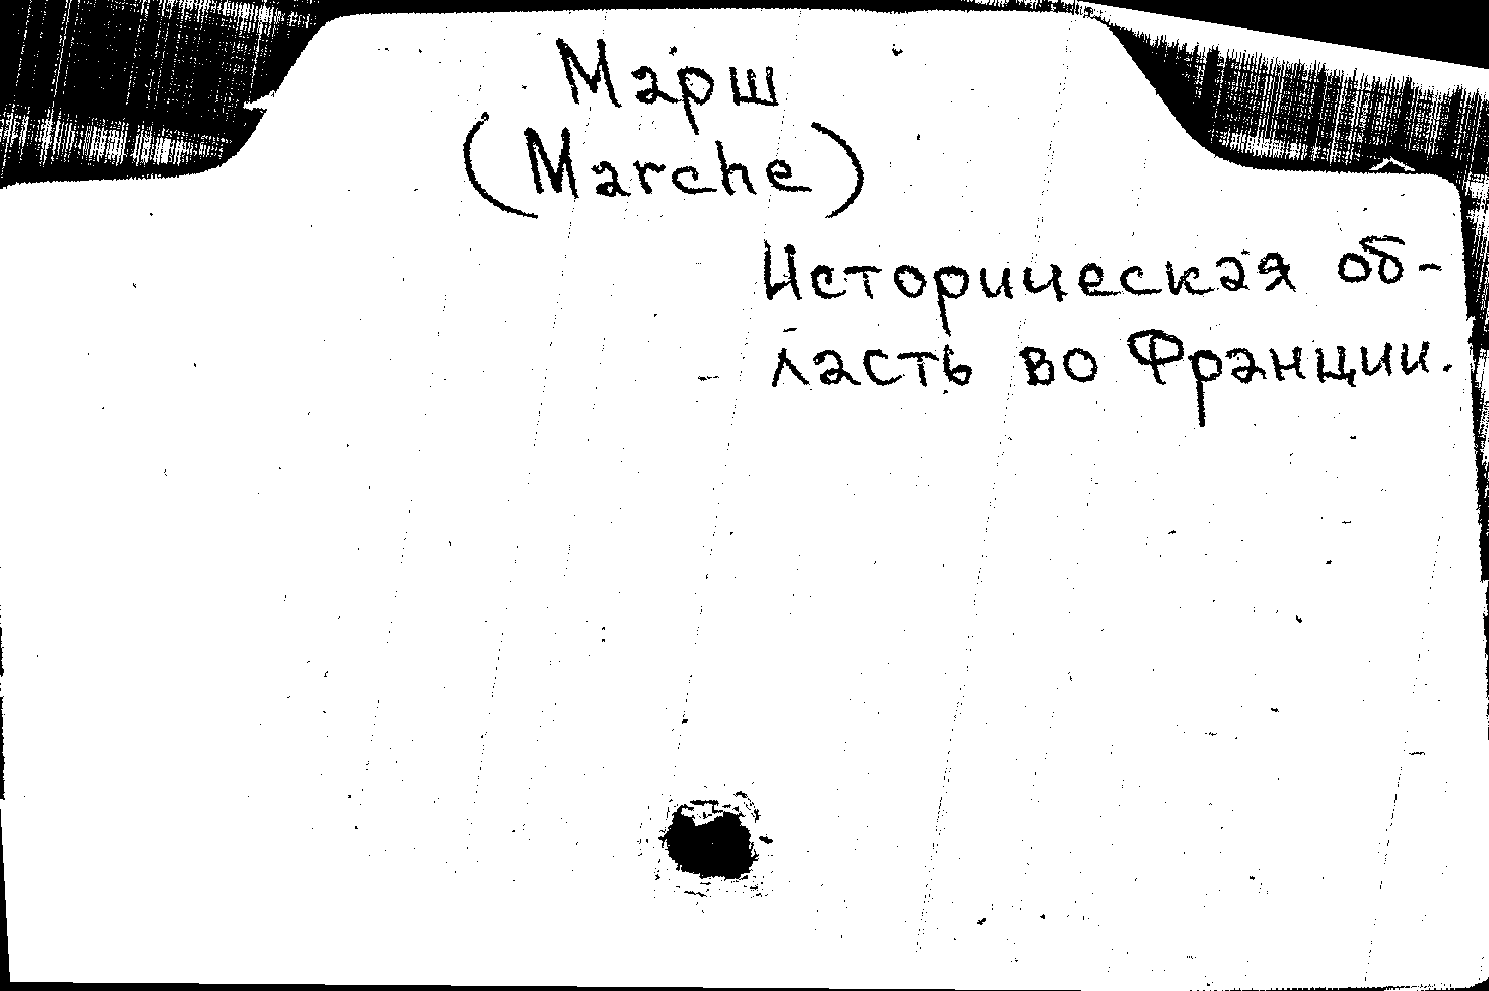 Марш
(Marche)
Историческая об-
ласть во Франции.